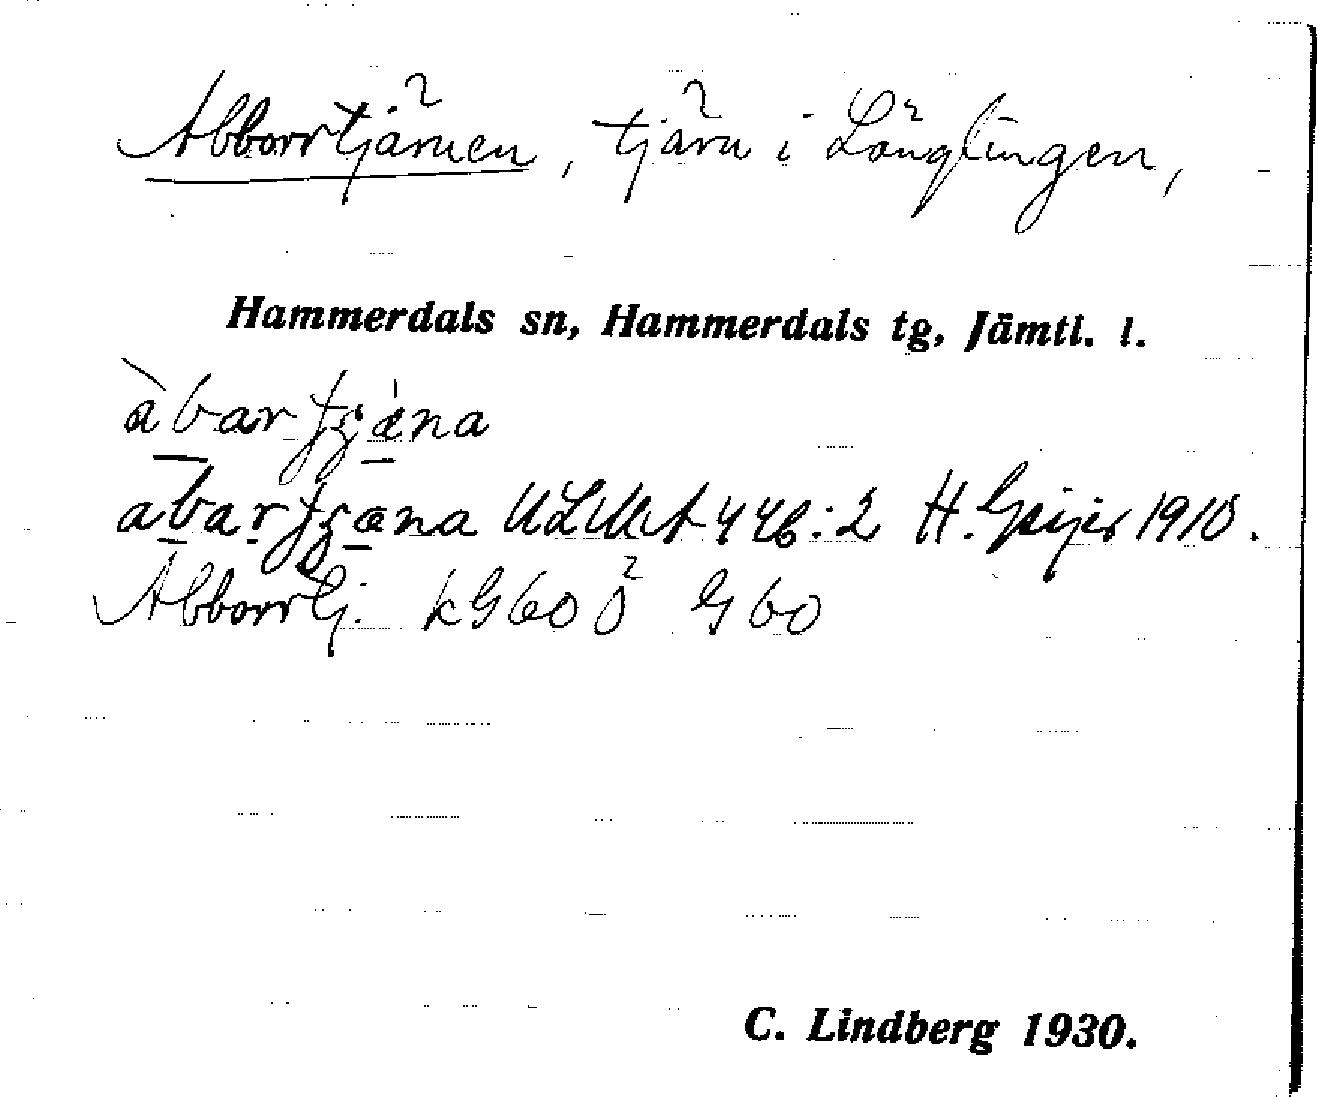 Abborrtjärnen, tjärn i Långtingen,
Hammerdals sn, Hammerdals tg, Jämtl. l.
àbarʈʂæ̀na
abarʈʂæna ULMA 446:2 H. Geijer 1910.
Abborrtj. kG60Ö G60
C. Lindberg 1930.